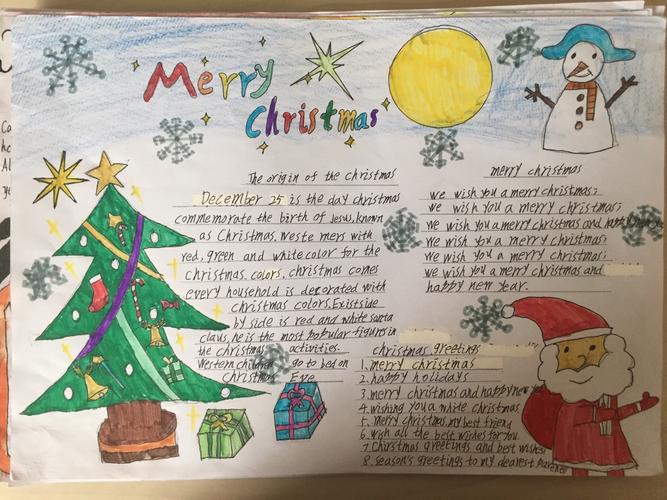 Merry
Christmas
The origin of the christmas
December 25 is the day christmas
commemorate the birth of Jesus, known
as Christmas. Weste mers with
red, green and white color for the
christmas colors. christmas comes
every household is decorated with
christmas colors. Existside
by side is red and white santa
claus, he is the most popular figures in
the christmas activities.
Western children go to bed on
Christmas Eve
merry christmas
we wish you a merry christmas;
we wish you a merry christmas;
we wish you a merry christmas and happy new year
we wish you a merry christmas;
we wish you a merry christmas;
we wish you a merry christmas and
happy new year.
christmas greetings
1. merry christmas
2. happy holidays
3. merry christmas and happy new
4. wishing you a white christmas
5. merry christmas, my best friend
6. wish all the best wishes for you
7. Christmas greetings and best wishes!
8. season's greetings to my dearest parents